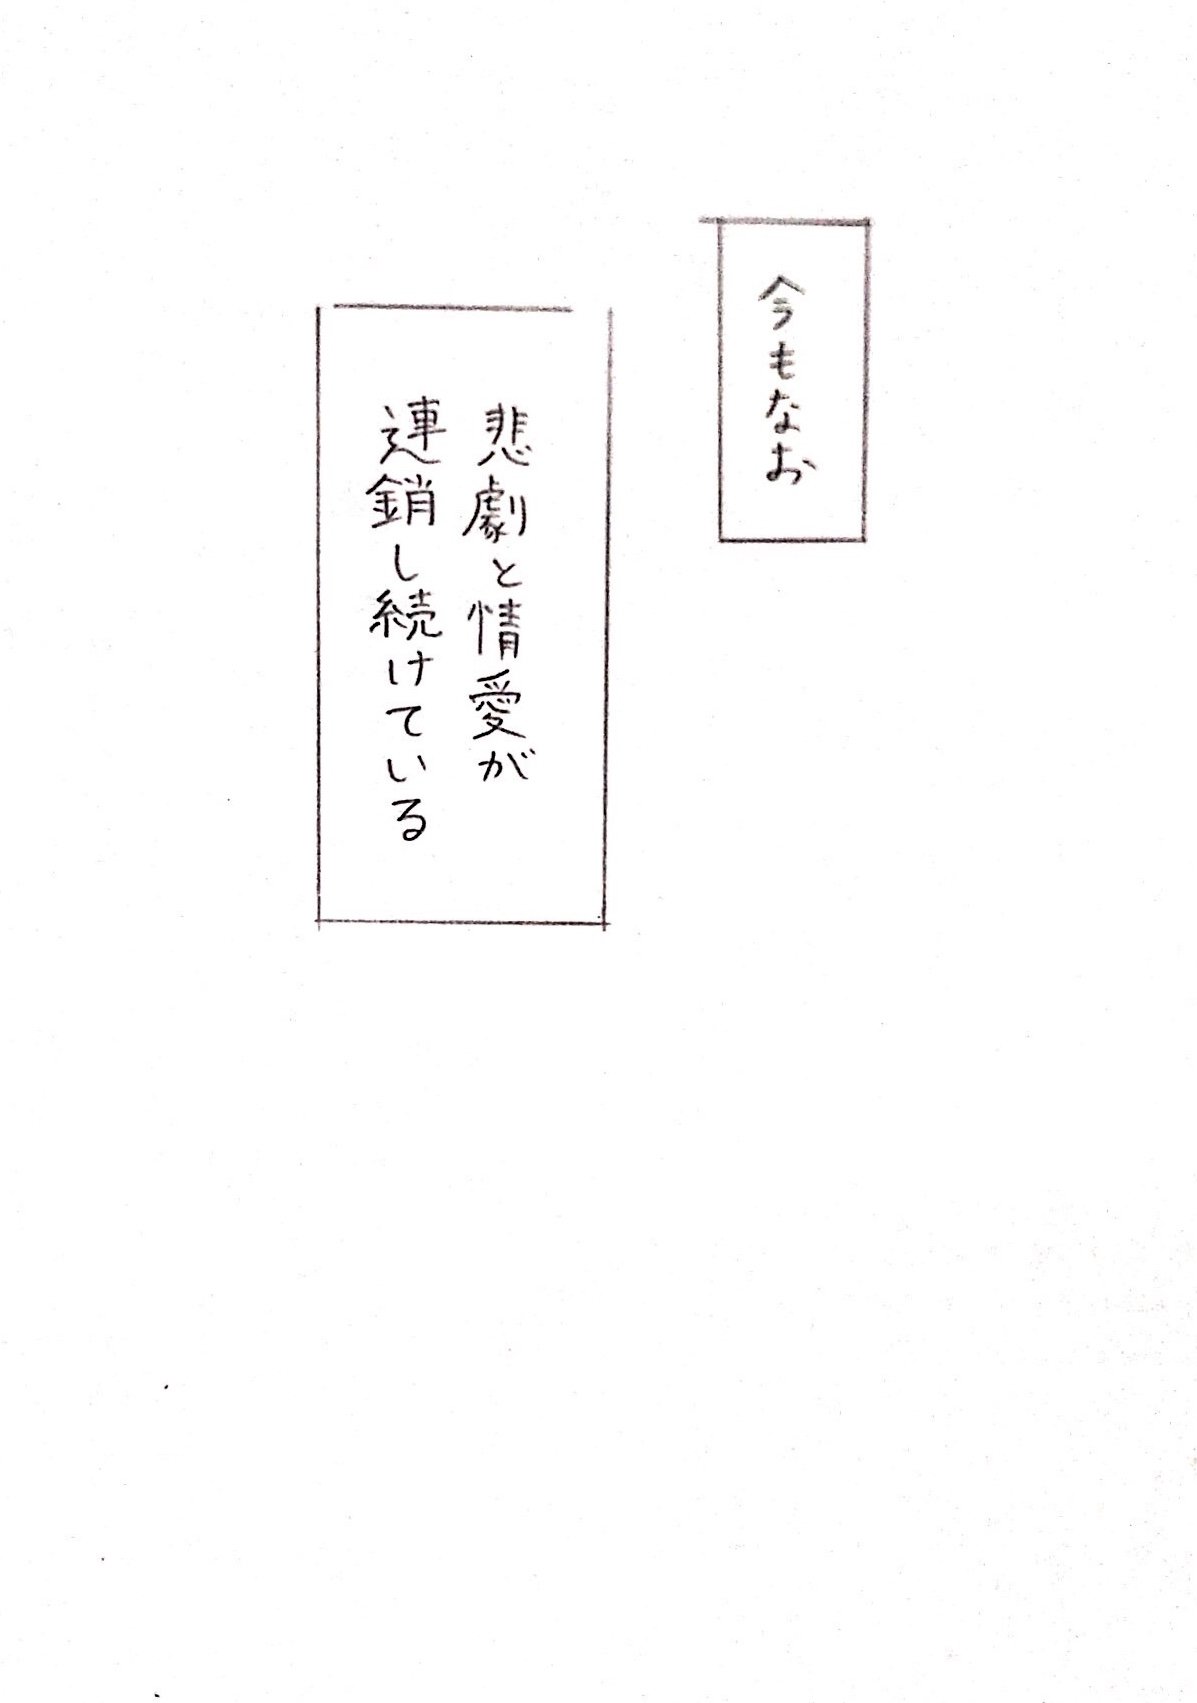 今もなお
悲劇と情愛が
連鎖し続けている